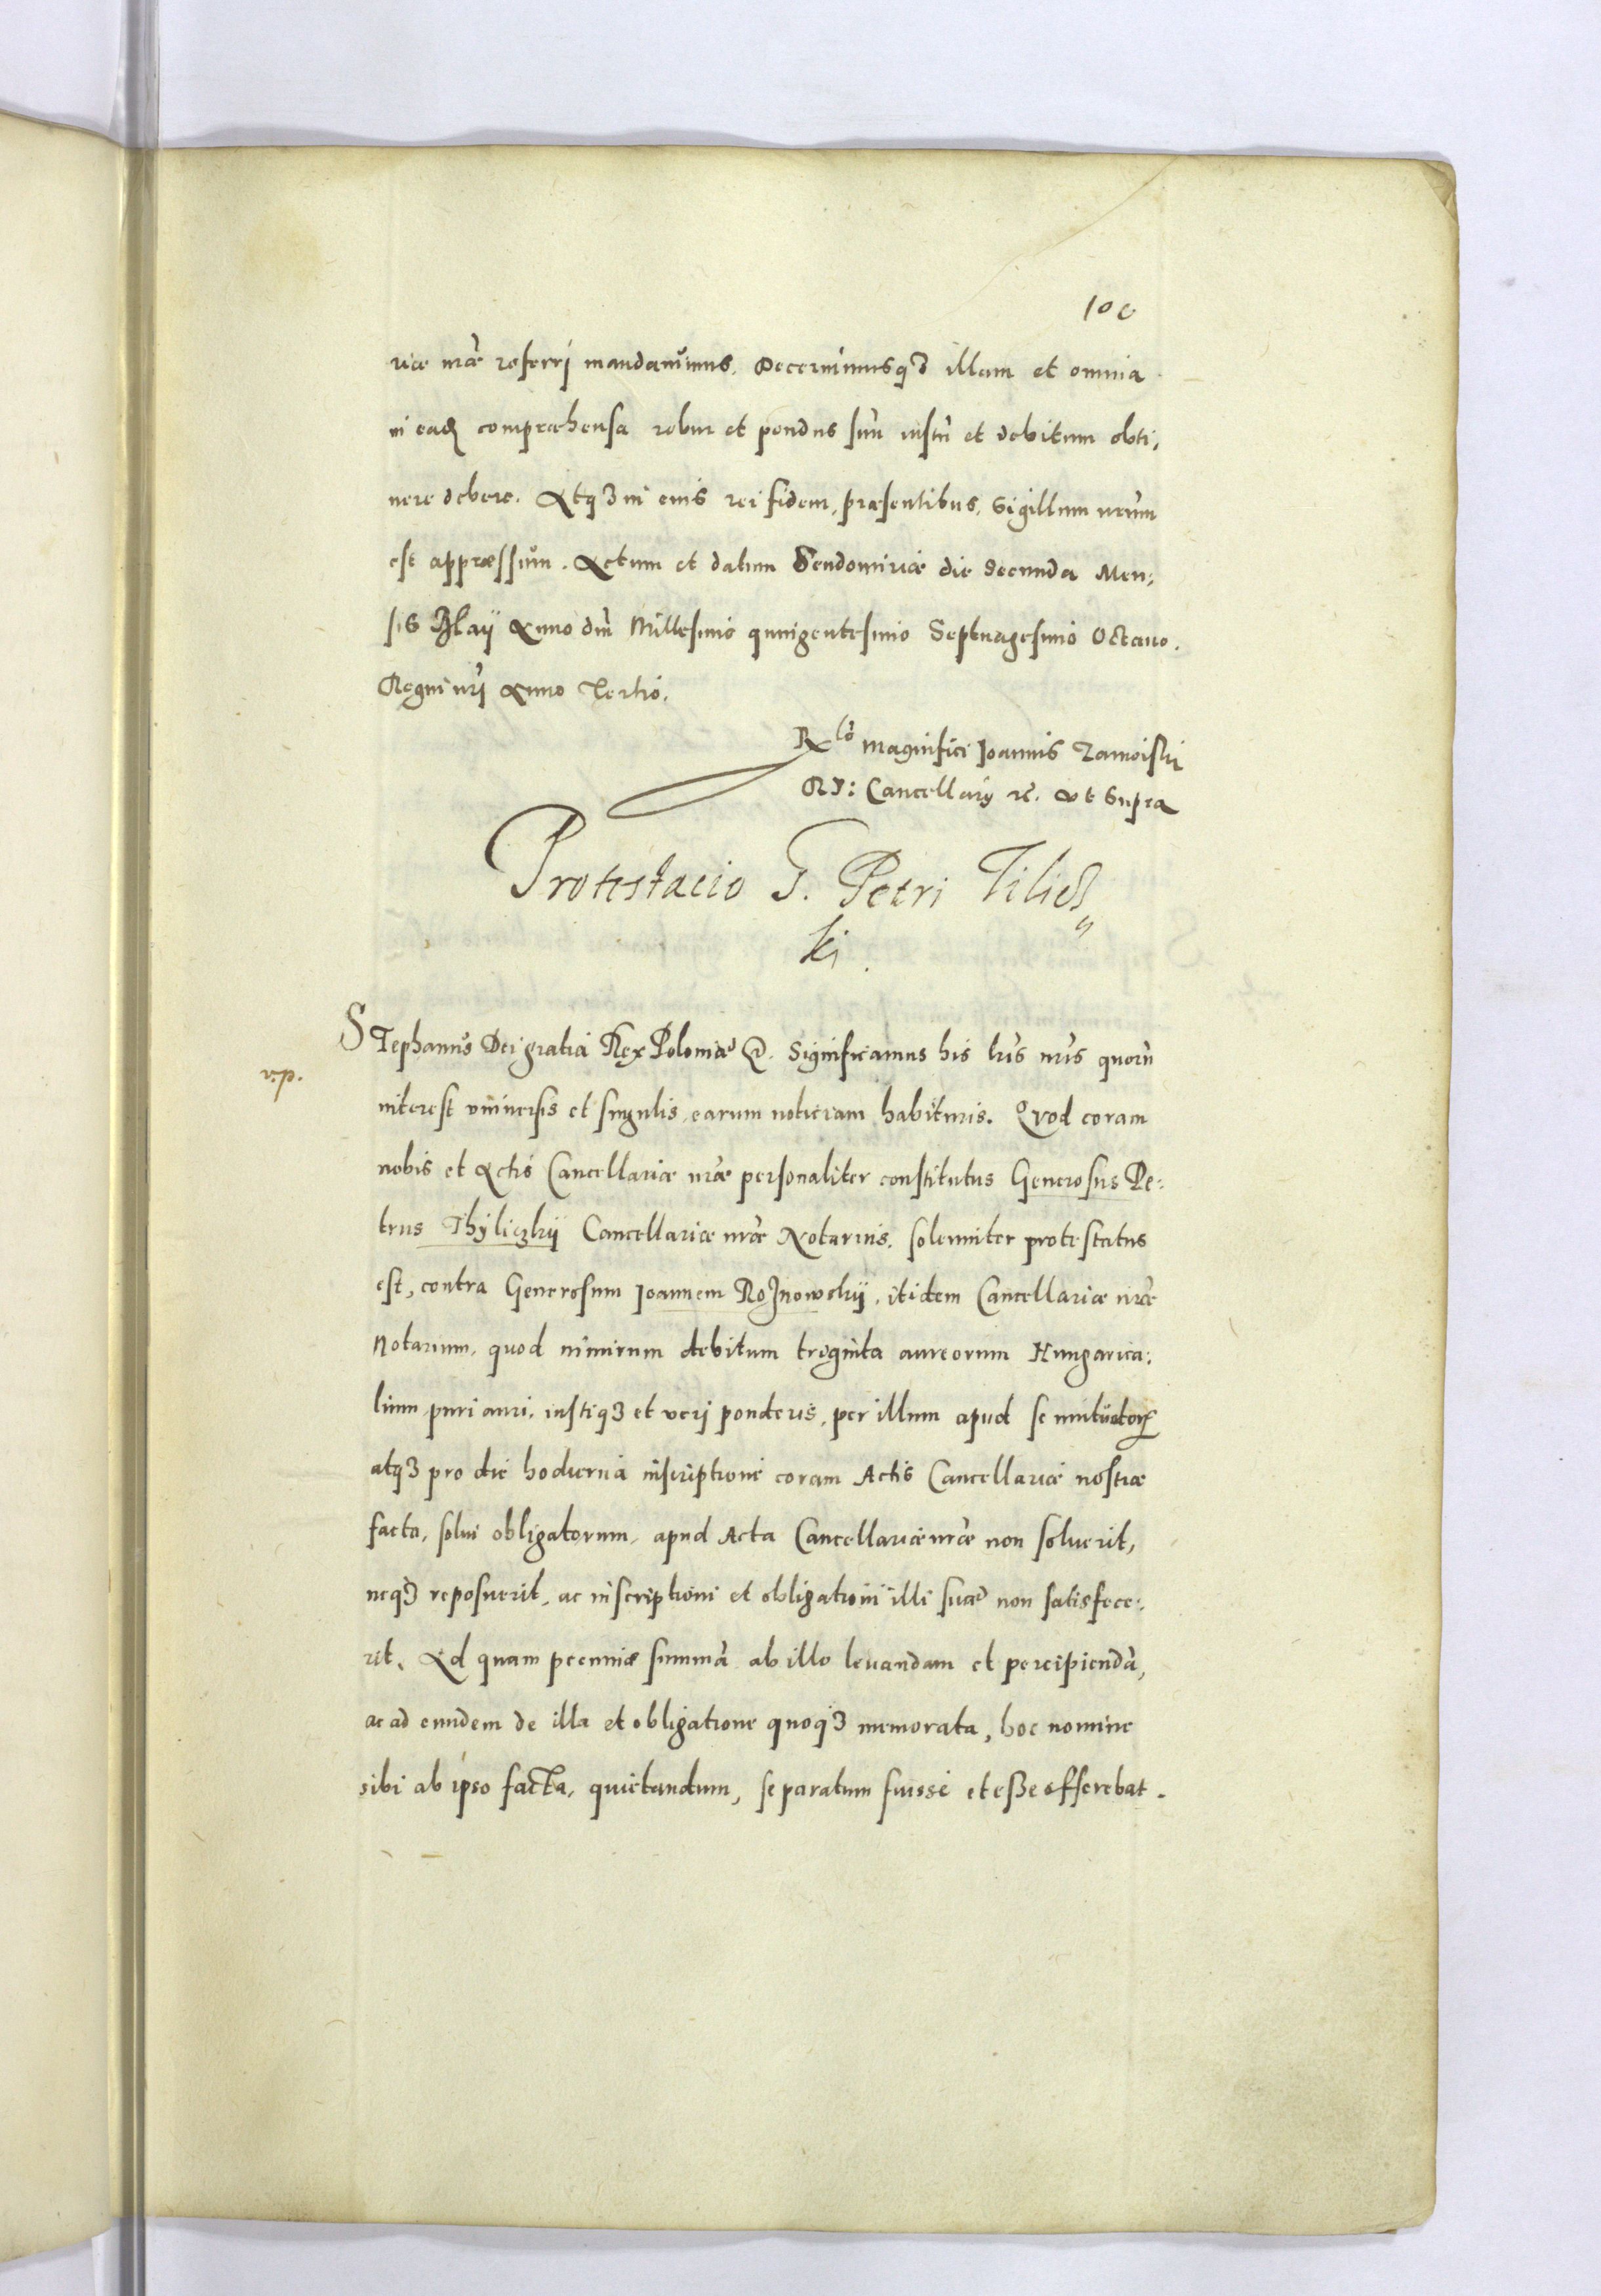 106
riæ nræ referri mandauimus. Decernimusq₃ illam et omnia
in eadẽ compræhensa robur et pondus suũ iustũ et debitum obti,
nere debere. Atq₃ in eius rei fidem, præsentibus, sigillum nrũm
est appræssum. Actum et datum Sendomiriæ die secunda Men:
sis Maij Anno dñi Millesimo quingentesimo Septuagesimo Octauo.
Regni nrĩ Anno Tertio.
Rlõ Magnifici Ioannis Zamoiski
RP: Cancellarij rẽ. vt supra
Protestacio G. Petri Tilicz
ki
STephanus Dei gratia Rex Poloniæ &. Significamus his lrĩs nrĩs quorũ
v.p.
interest vniuersis et singulis, earum notieiam habituris. Quod coram
nobis et Actis Cancellariæ nræ personaliter constitutus Generosus Pe:
trus Thyliczkij Cancellariæ nræ Notarius. solenniter protestatus
est, contra Generosum Ioannem Rożnowskij, itidem Cancellariæ nræ
Notarium, quod nimirum debitum triginta aureorum Hungarica:
lium puri auri, iustiq₃ et veri ponderis, per illum apud se mutuatorũ
atq₃ pro die hodierna inscriptione coram Actis Cancellariæ nostræ
facta, solui obligatorum, apud Acta Cancellariæ nræ non soluerit,
neq₃ reposuerit, ac inscriptioni et obligationi illi suæ non satisfece:
rit. Ad quam pecuniæ summã ab illo leuandam et percipiendã,
ac ad eundem de illa et obligatione quoq₃ memorata, hoc nomine
sibi ab ipso facta, quietandum, se paratum fuisse et eße offerebat.